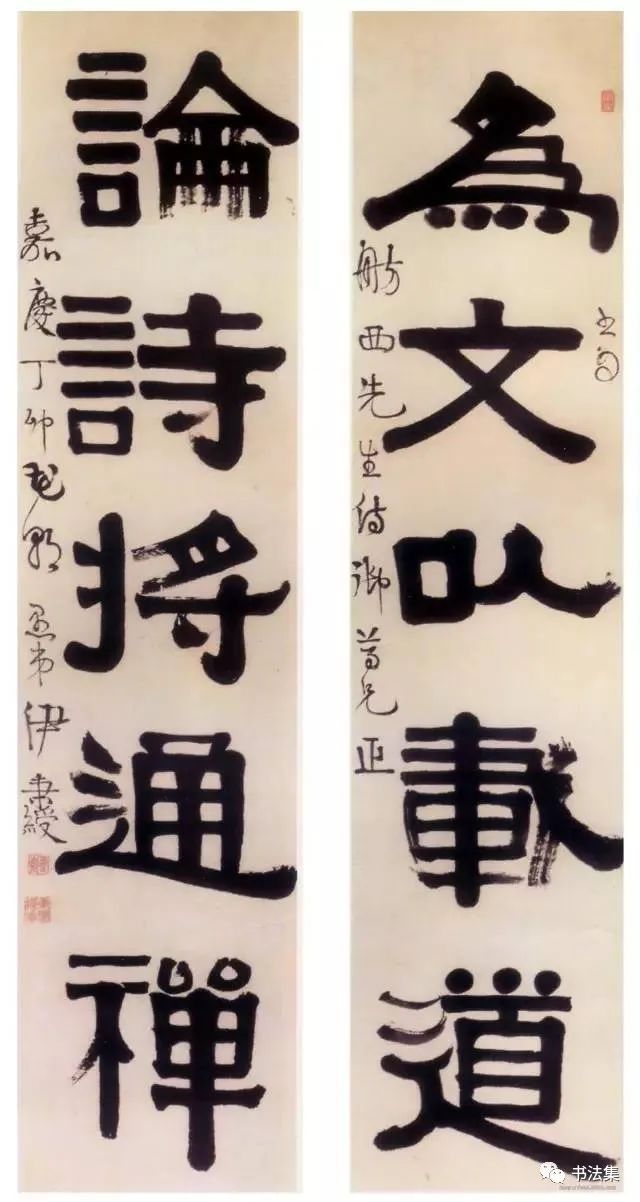 為文以載道
舫西先生侍御尊兄正
論詩將通禪
嘉慶丁卯花朝愚弟伊秉綬
书法集